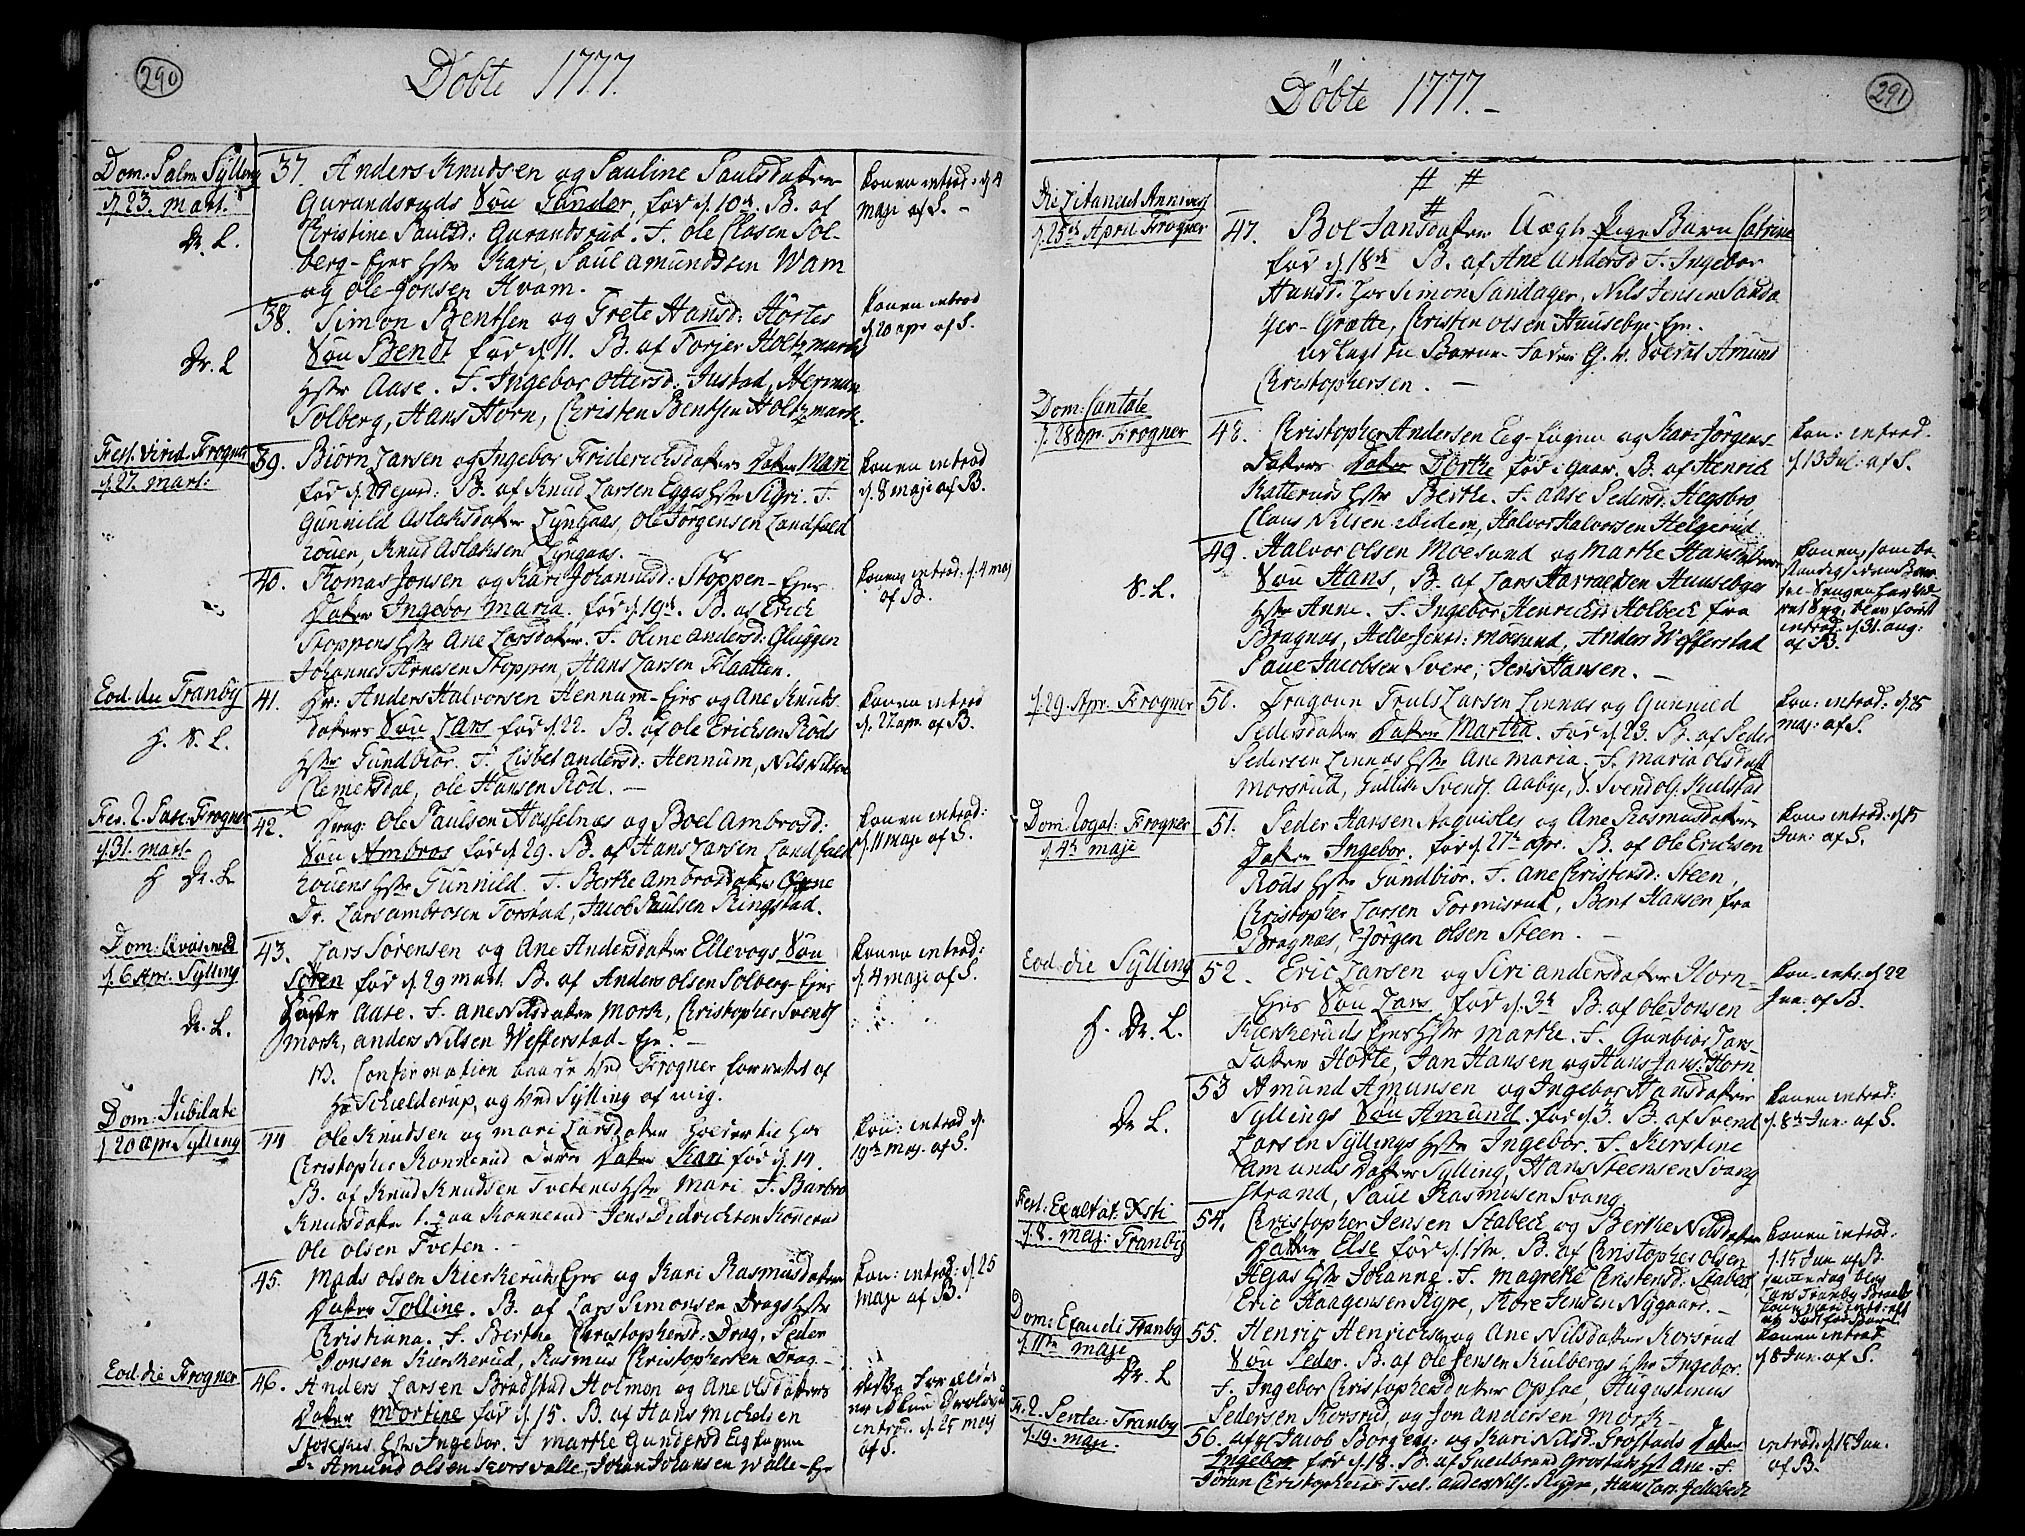 290
Döbte 1777.
Dom: Palm Sÿlling
d. 23. mart.
Dr. L.
37. Anders Knudsen og Pauline Paulsdatter
Gurandsruds Søn Gunder, før d. 10de. B. af
Christine Paulsd: Gurandsrud. F. Ole Clasen Sol-
berg-Ejer Hstr Kari, Paul Amundsen Wam
og Ole Jonsen Hvam.
Konen introd: d. 4
maji af S. -
Dr. L
38. Simon Bentsen og Grete Hansd: Hörtes
Søn Bendt før d. 11. B. af Torjer Holtzmarks
Hstr Aase. F. Ingebor Ottersd: Justad, Herman
Solberg, Hans Horn, Christen Bentsen Holtzmark.
Konen introd
d. 20 apr af S.
Fest. Virid. Frogner
d. 27. mart:
39. Biörn Larsen og Ingebor Friderichsdatters Datter Mari
før d. B. af Knud Larsen Egges Hstr Sigri. F.
Gunnild Aslaksdatter Lyngaas, Ole Jörgensen Landfald
Knud Aslaksen Lyngaas.
Konen introd
d. 8 maji af B.
40. Thomas Jonsen og Kari Johannesd: Stoppen-Ejer
Datter Ingebor Maria, før d. 19de. B. af Erich
Stoppens Hstr Ane Larsdatter. F. Oline Andersd: Gluggen
Johannes Arnesen Stoppen, Hans Larsen Flaatten.
Konen introd: d. 4 maj
af B.
Eod. die Tranbÿ
H. S. L.
41. Dr: Anders Halvorsen Hennum-Ejer og Ane Knuds
datters Søn Lars før d. 22. B. af Ole Ericksen Röds
Hstr Gundbiör. F. Lisbet Andersd: Hennum, Nils Nilsen
Clemetsdal, Ole Hansen Röd. -
Konen introd
d. 27 apr. af B.
Fer. 2. Pasc. Frogner
d. 31. mart.
H Dr. L.
42. Drag: Ole Paulsen Hasselnæs og Boel Ambrosd:
Søn Ambros før d. 29. B. af Hans Larsen Landfald
Hstr Gunnild. F. Berthe Ambrosdatter
Dr. Lars Ambrosen Torstad, Jacob Paulsen Ringstad.
Konen introd:
d. 11 maji af S.
Dom: Qvasimod
d. 6 Apr: Sÿlling
Dr. L.
43. Lars Sörensen og Ane Andersdatter Ellevogs Søn
Sören før d. 29 mart. B. af Anders Olsen Solberg-Ejers
Aase. F. Ane Nilsdatter Mork, Christopher Svends
Mork, Anders Nilsen Wefferstad-Ejr. -
NB. Confirmation baade ved Frogner forrettet af
Hr Schielderup, og ved Sÿlling af mig.
Konen introd:
d. 4 maji af S.
Dom: Jubilate
d. 20 apr Sÿlling
44 Ole Knudsen og Mari Larsdatter
Christopher Konnerud Datter Kari før d. 14.
B. af Knud Knudsen Tvetenes Hstr Mari. F. Barbro
Knudsdatter Konnerud Jens Didrichsen Konnerud
Ole Olsen Tveten. -
Kon: introd d.
19de maj. af S.
45. Mads Olsen Kierkeruds Ejer og Kari Rasmusdatters
Datter Tolline. B. af Lars Simonsen Drags Hstr
Christiana. F. Berthe Christophersd: Drag, Peder
Jonsen Kierkerud, Rasmus Christophersen Drag -
Kon: introd: d. 25
maji af B.
Eod. die Frogner
46. Anders Larsen Bradstad Holmen og Ane Olsdatters
Datter Mortine før d. 15. B. af Hans Michelsen
Hstr Ingebor. F Marthe Gundersd Eeg
Dr Amund Olsen Korsvalle, Johan Johansen Walle-Ejr
introd. d. 25 maj
af S.
291
Döbte 1777. -
d. 25de April Frogner
# #
#
47. Boel Jansdatter Uægte Pige Barn Catrine
før d. 18de B. af Ane Andersd F. Ingebor
Hansd: hos Simon Sandager, Nils Jensen Sanda
ger-Grætte, Christen Olsen Huusebye-Ejr.
udlagt til Barne-Fader Amund
Christophersen. -
Dom: Cantate
d. 28 apr. Frogner
48. Christopher Andersen Eeg og Kari Jörgens-
datters Datter Dorthe før B. af Henrich
Katteruds Hstr Berthe. F. Aase Pedersd: Hegsbro,
Claus Nilsen ibidem, Halvor Halvorsen Helgerud
Kon: introd.
d. 13 Jul: af S.
S. L.
49. Halvor Olsen Moesund og Marthe Hansdatters
Søn Hans, B. af Lars Harraldsen Huusebyes
Hstr Anne. F. Ingebor Henrichs: Holbech fra
Bragnæs, Helle Jens: Mösund, Anders Wefferstad
Paul Jacobsen Svere, Jens Hansen. -
Konen, som be-
introd: d. 31. aug:
af B.
d. 29. Apr. Frogner
50. Dragoun Truls Larsen Linnæs og Gunnild
Pedersdatters Datter Martha. før d. 23. B. af Peder
Pedersen Linnæs Hstr Ane Maria. F. Maria Olsdatt
Morsrud, Gullich Svends. Aabye, S. Svend Ols. Kulstad
Kon: introd: d. 25
maj: af S.
Dom: Rogat: Frogner
d. 4de maji
51. Peder Hansen og Ane Rasmusdatters
Datter Ingebor. før d. 27de apr. B. af Ole Ericksen
Röds Hstr Gundbiör. F. Ane Christensd: Steen,
Christopher Larsen Tormisrud, Bent Hansen fra
Bragnæs, Jörgen Olsen Steen. -
Kon: introd: d. 15
Jun: af S.
Eod. die Sÿlling
H. Dr. L.
52. Eric Larsen og Siri Andersdatter Horn-
Ejers Søn Lars før d. 3de B. af Ole Jonsen
Kierkeruds Ejers Hstr Marthe. F. Gunbiör Lars-
datter Hörte, Jan Hansen og Hans Jans: Horn
Kon. intr. d. 22
Jun. af B.
Dr L.
53 Amund Amunsen og Ingebor Hansdatter
Syllings Søn Amund. før d. 3. B. af Svend
Larsen Syllings Hstr Ingebor. F. Kerstine
Amundsdatter Sylling, Hans Steensen Svang
strand, Paul Rasmusen Svang
Konen introd:
d. 8de Jun: af S.
Fest: Exaltat: Xsti
d. 8. maj: Tranbÿ
54. Christopher Jensen Stabech og Berthe Nilsdatter
Datter Else før d. 1ste. B. af Christopher Olsen
Hejas Hstr Johanne. F. Magrethe Christensd: Stabech
Eric Haagensen Rype, Thore Jensen Nÿgaard. -
Konen introd:
d. 15 Jun. af B.
Dom: Exaudi Tranbÿ
d. 11te maji
Dr. L
55. Henric Henrichs: og Ane Nilsdatter Korsrud
Søn Peder. B. af Ole Jensen Kulbergs Hstr Ingebor.
F. Ingebor Christophersdatter Opsal, Augustinus
Pedersen Korsrud, og Jon Andersen Mork -
Konen introd.
d. 8 Jun: af S.
Fer. 2. Pente: Tranbÿ
d. 19. maji.
56. Jacob Borgers: og Kari Nilsd. Grostads Datter
Ingebor før d. 18. B. af Guldbrand Grostads Hst Ane. F.
Jöran Christophersd Tvet. Anders Nils. Rype, Hans Lars. Gellebech
introd. d. 15 Jun.
af B.